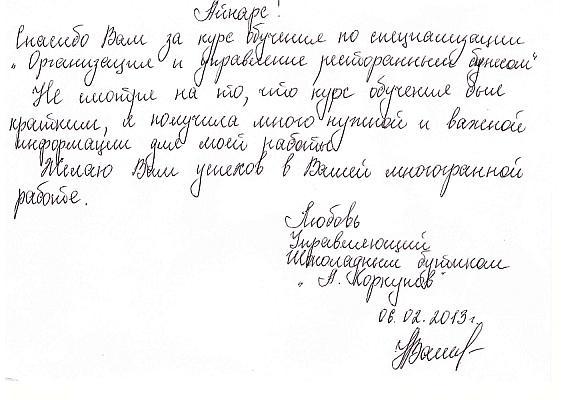 Айнарс!
Спасибо Вам за курс обучения по специализации
„Организация и управление ресторанным бизнесом"
Не смотря на то, что курс обучения был
кратким, я получила много нужной и важной
информации для моей работы.
Желаю Вам успехов в Вашей многогранной
работе.
Любовь
Управляющий
Шоколадным бутиком
„А. Коркунов"
06.02.2013г.